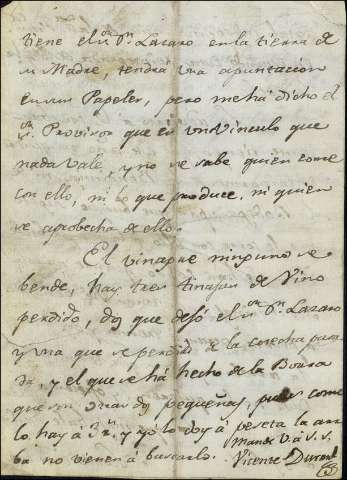 tiene el Sr. Dn. Lazaro en la tierra de
su Madre, tendrá una apuntacion
en sus Papeles, pero me há dicho el
Sr. Provisor que es un Vinculo que
nada vale, y no se sabe quien come
con ello, ni lo que produce, ni quien
se aprobecha de ello.
El vinagre ninguno se
bende, hay tres tinajas de Vino
perdido, dos que dejó el Sr. Dn. Lazaro
y una que se perdio de la cosecha pasa
da, y el que se há hecho de la
que son dos pequeñas, pues como
lo hay á 3 rs. y yó lo doy á peseta la arro
ba no vienen á buscarlo.
Mande V. á S. S.
Vicente Durand